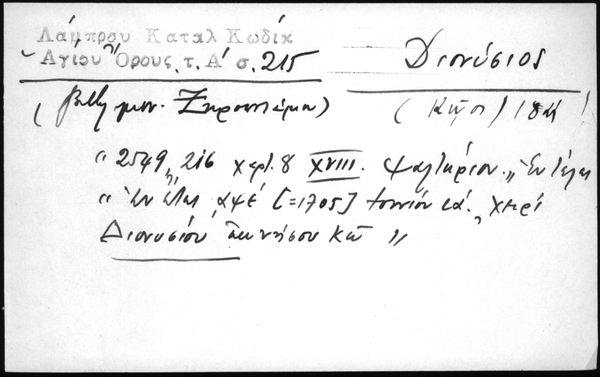 Λάμπρου Καταλ Κωδίκ
Ἁγίου Ὄρους τ. Α΄ σ. 215
Διονύσιος
( μον. Ξηροποτάμου)
(Κῶς)
"2549, 216 χαρτ. 8 XVIII. Ψαλτήριον. „Ἐν τέλει
"Ἐν ἔτει αψέ [=1705] Ἰουνίου χειρί
Διονυσίου ἐκ νήσου Κῶ "